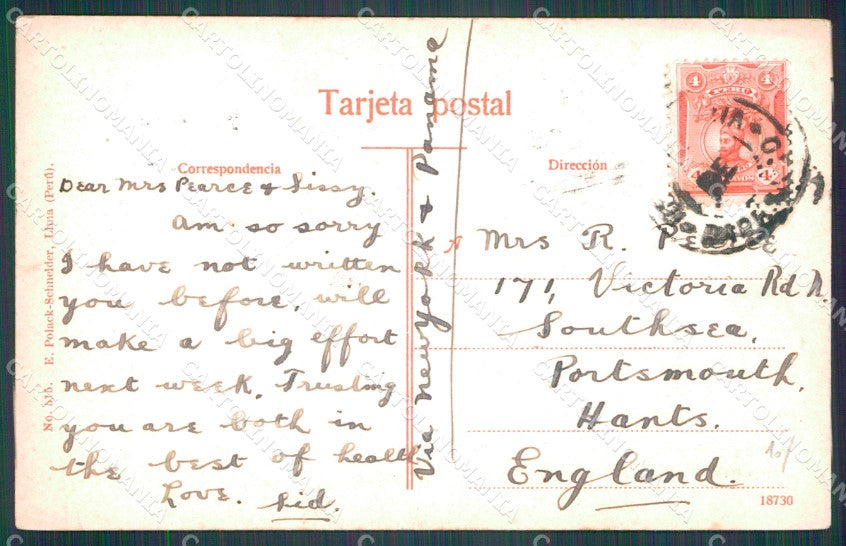 Tarjeta postal
Correspondencia
Dirección
No. 515. E. Polack-Schneider, Lima (Perú).
Dear Mrs Pearce & Sissy.
Am so sorry
I have not written
you before, will
make a big effort
next week. Trusting
you are both in
the best of health
Love. Sid.
Via New York & Panama
4 4
PERU
4 4
A Mrs R. Pearce
171, Victoria Rd N.
Southsea,
Portsmouth,
Hants.
England.
18730
CARTOLINOMANIA